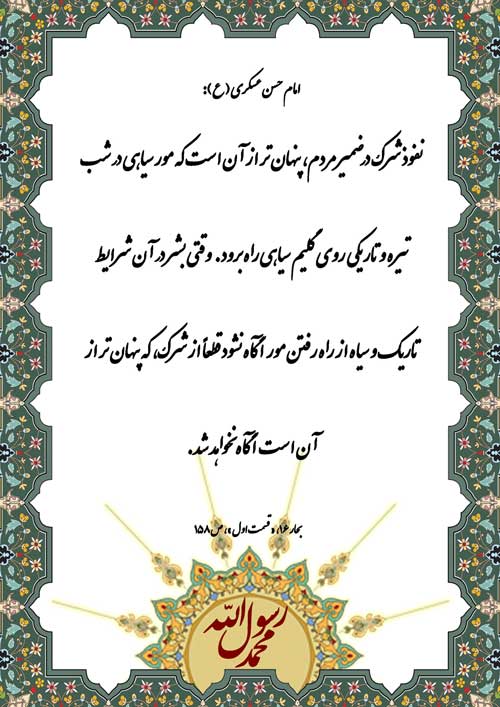 امام حسن عسکری (ع):
نفوذ شرک در ضمیر مردم، پنهان تر از آن است که مور سیاهی در شب
تیره و تاریکی روی گلیم سیاهی راه برود. وقتی بشر در آن شرایط
تاریک و سیاه از راه رفتن مور آگاه نشود قطعاً از شرک، که پنهان تر از
آن است آگاه نخواهد شد.
بحار ۱۶، «قسمت اول»، ص ۱۵۸
محمد رسول الله